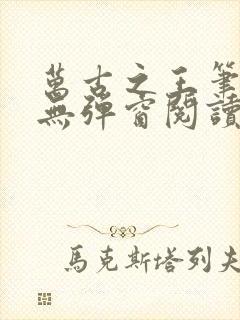 萬古之王筆
無彈窗閱讀
馬克斯塔列夫